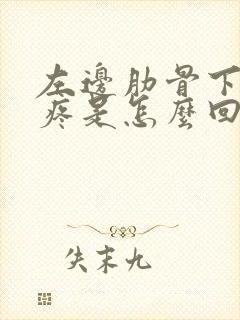 左邊肋骨下
疼是怎麼回
失末九